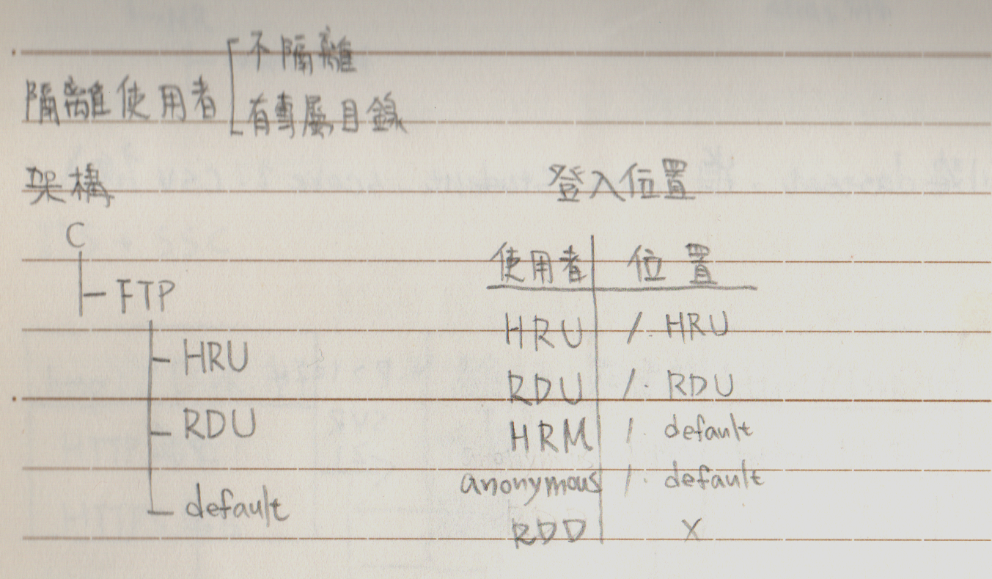 隔離使用者
不隔離
有專屬目錄
架構
C
FTP
HRU
RDU
default
登入位置
使用者 位置
HRU /. HRU
RDU /. RDU
HRM /. default
anonymous /. default
RDD X